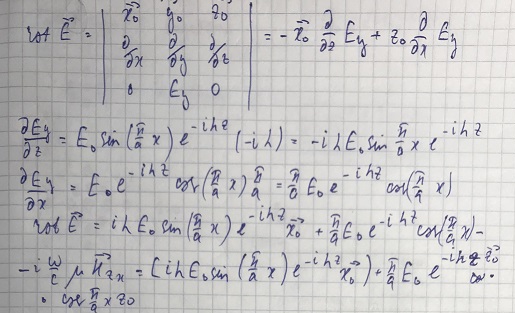 rot E⃗ = | x⃗₀ y₀ z₀ | = - x⃗₀ ∂/∂z Ey + z₀ ∂/∂x Ey
∂/∂x ∂/∂y ∂/∂z
0 Ey 0
∂Ey/∂z = E₀ sin (π/a x) e^{-ihz} (-ih) = -ihE₀ sin π/a x e^{-ihz}
∂Ey/∂x = E₀ e^{-ihz} cos(π/a x) π/a = π/a E₀ e^{-ihz} cos(π/a x)
rot E⃗ = ihE₀ sin(π/a x) e^{-ihz} x⃗₀ + π/a E₀ e^{-ihz} cos(π/a x) -
-i ω/c μ H⃗ = (ihE₀ sin(π/a x) e^{-ihz} x⃗₀) + π/a E₀ e^{-ihz} z⃗₀
· cos π/a x z₀